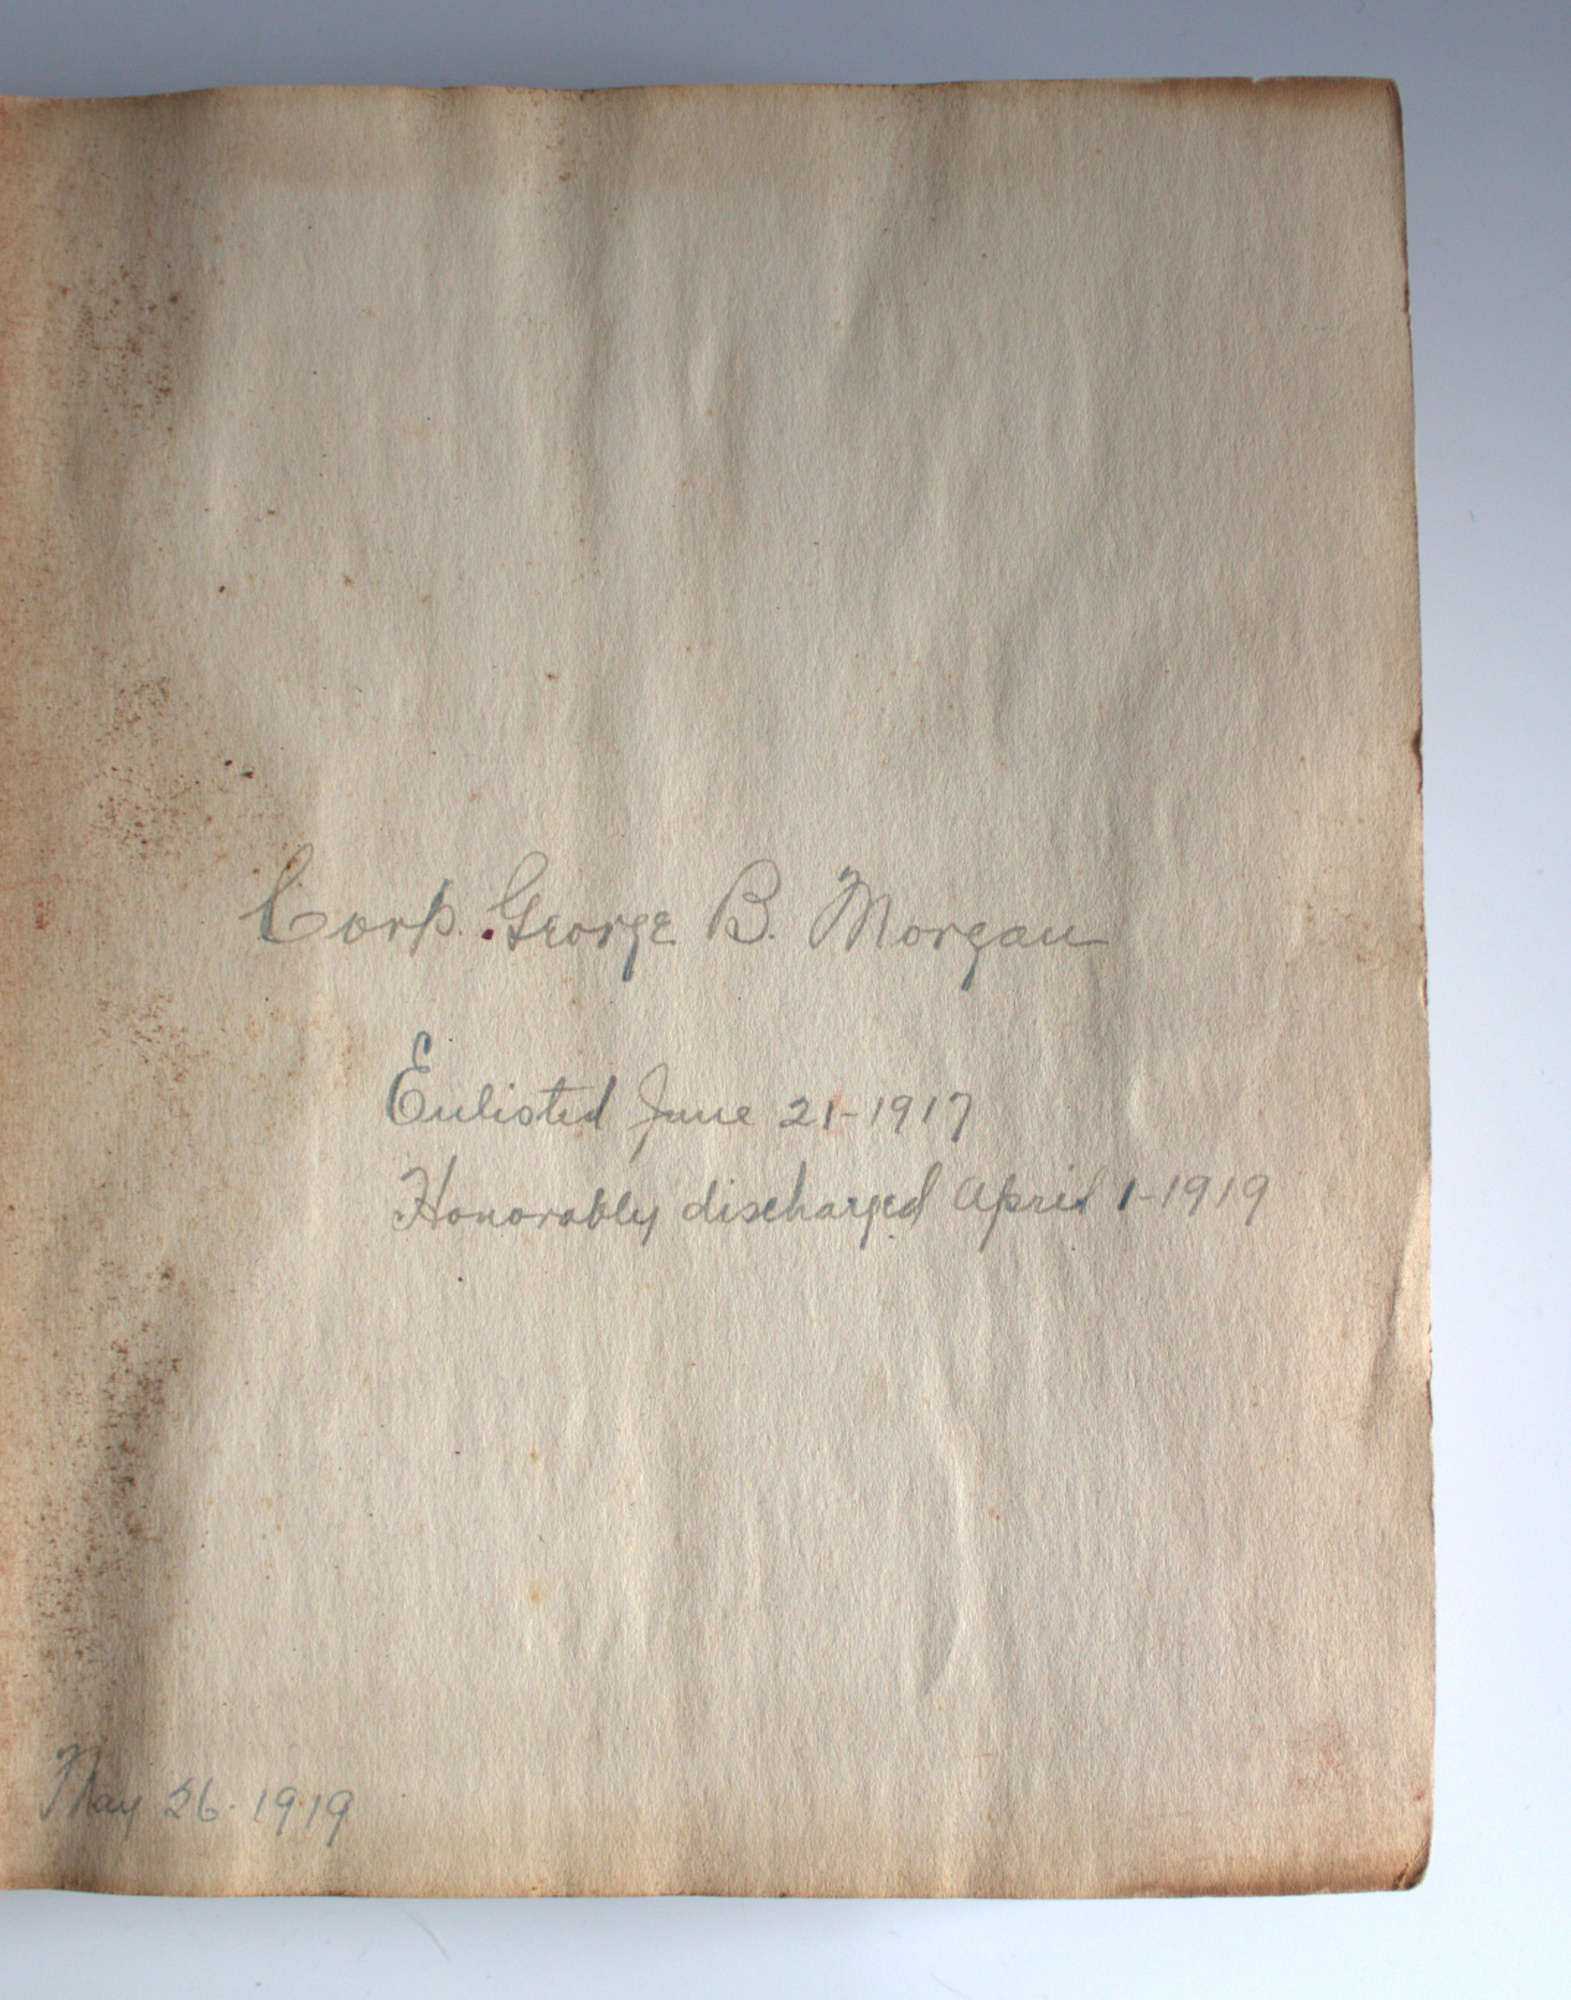 Corp. George B. Morgan
Enlisted June 21-1917
Honorably discharged April 1-1919
May 26. 1919